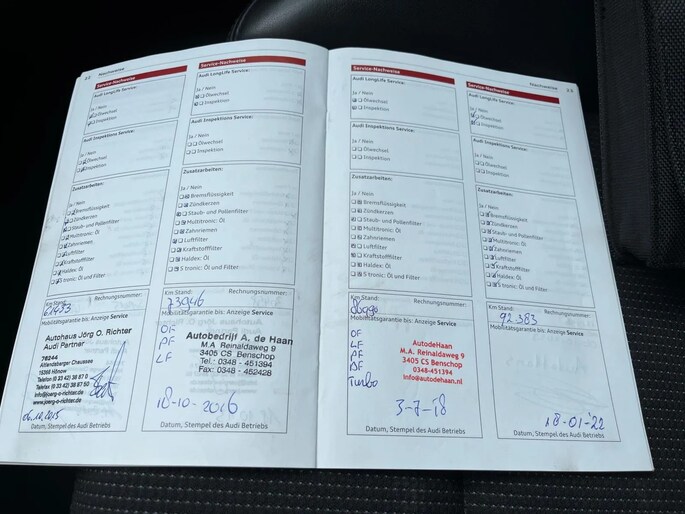 Nachweise
Service-Nachweise
Audi LongLife Service:
Ja / Nein
Ölwechsel
Inspektion
Audi Inspektions Service:
Ja / Nein
Ölwechsel
Inspektion
Zusatzarbeiten:
Ja / Nein
Bremsflüssigkeit
Zündkerzen
Staub- und Pollenfilter
Multitronic: Öl
Zahnriemen
Luftfilter
Kraftstofffilter
Haldex: Öl
S tronic: Öl und Filter
Km Stand: Rechnungsnummer:
Mobilitätsgarantie bis: Anzeige Service
Autohaus Jörg O. Richter
Audi Partner
76244
Altlandsberger Chaussee
15366 Hönow
Telefon (0 33 42) 36 87 0
Telefax (0 33 42) 36 87 50
info@joerg-o-richter.de
www.joerg-o-richter.de
06.10.2015
Datum, Stempel des Audi Betriebs
Service-Nachweise
Audi LongLife Service:
Ja / Nein
Ölwechsel
Inspektion
Audi Inspektions Service:
Ja / Nein
Ölwechsel
Inspektion
Zusatzarbeiten:
Ja / Nein
Bremsflüssigkeit
Zündkerzen
Staub- und Pollenfilter
Multitronic: Öl
Zahnriemen
Luftfilter
Kraftstofffilter
Haldex: Öl
S tronic: Öl und Filter
Km Stand: Rechnungsnummer:
73946
Mobilitätsgarantie bis: Anzeige Service
OF
PF
LF
Autobedrijf A. de Haan
M.A. Reinaldaweg 9
3405 CS Benschop
Tel.: 0348 - 451394
Fax: 0348 - 452428
18-10-2016
Datum, Stempel des Audi Betriebs
Service-Nachweise
Audi LongLife Service:
Ja / Nein
Ölwechsel
Inspektion
Audi Inspektions Service:
Ja / Nein
Ölwechsel
Inspektion
Zusatzarbeiten:
Ja / Nein
Bremsflüssigkeit
Zündkerzen
Staub- und Pollenfilter
Multitronic: Öl
Zahnriemen
Luftfilter
Kraftstofffilter
Haldex: Öl
S tronic: Öl und Filter
Km Stand: Rechnungsnummer:
Mobilitätsgarantie bis: Anzeige Service
OF
LF
PF
Turbo
AutodeHaan
M.A. Reinaldaweg 9
3405 CS Benschop
0348-451394
info@autodehaan.nl
3-7-18
Datum, Stempel des Audi Betriebs
Nachweise 23
Service-Nachweise
Audi LongLife Service:
Ja / Nein
Ölwechsel
Inspektion
Audi Inspektions Service:
Ja / Nein
Ölwechsel
Inspektion
Zusatzarbeiten:
Ja / Nein
Bremsflüssigkeit
Zündkerzen
Staub- und Pollenfilter
Multitronic: Öl
Zahnriemen
Luftfilter
Kraftstofffilter
Haldex: Öl
S tronic: Öl und Filter
Km Stand: Rechnungsnummer:
92.383
Mobilitätsgarantie bis: Anzeige Service
18-01-'22
Datum, Stempel des Audi Betriebs